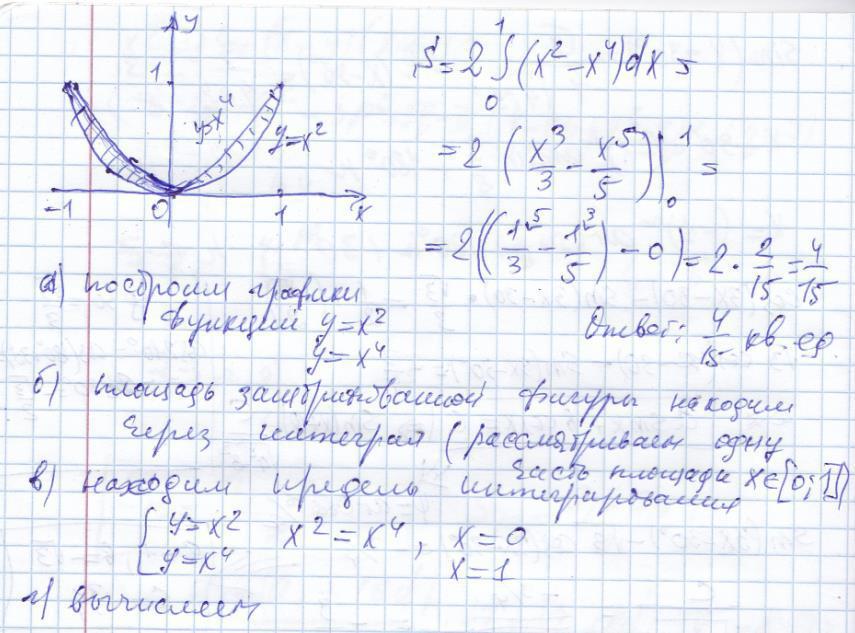 y
1
y=x⁴
y=x²
-1 0 1 x
S = 2 ∫₀¹ (x² - x⁴) dx =
= 2 (x³/3 - x⁵/5) |₀¹ =
= 2 ((1⁵/3 - 1³/5) - 0) = 2 · 2/15 = 4/15
Ответ: 4/15 кв. ед.
а) построим графики
функций y=x²
y=x⁴
б) площадь заштрихованной фигуры находим
через интеграл (рассматриваем одну
часть площади x∈[0;1])
в) находим пределы интегрирования
{ y=x² x² = x⁴, x=0
y=x⁴ x=1
г) вычисляем